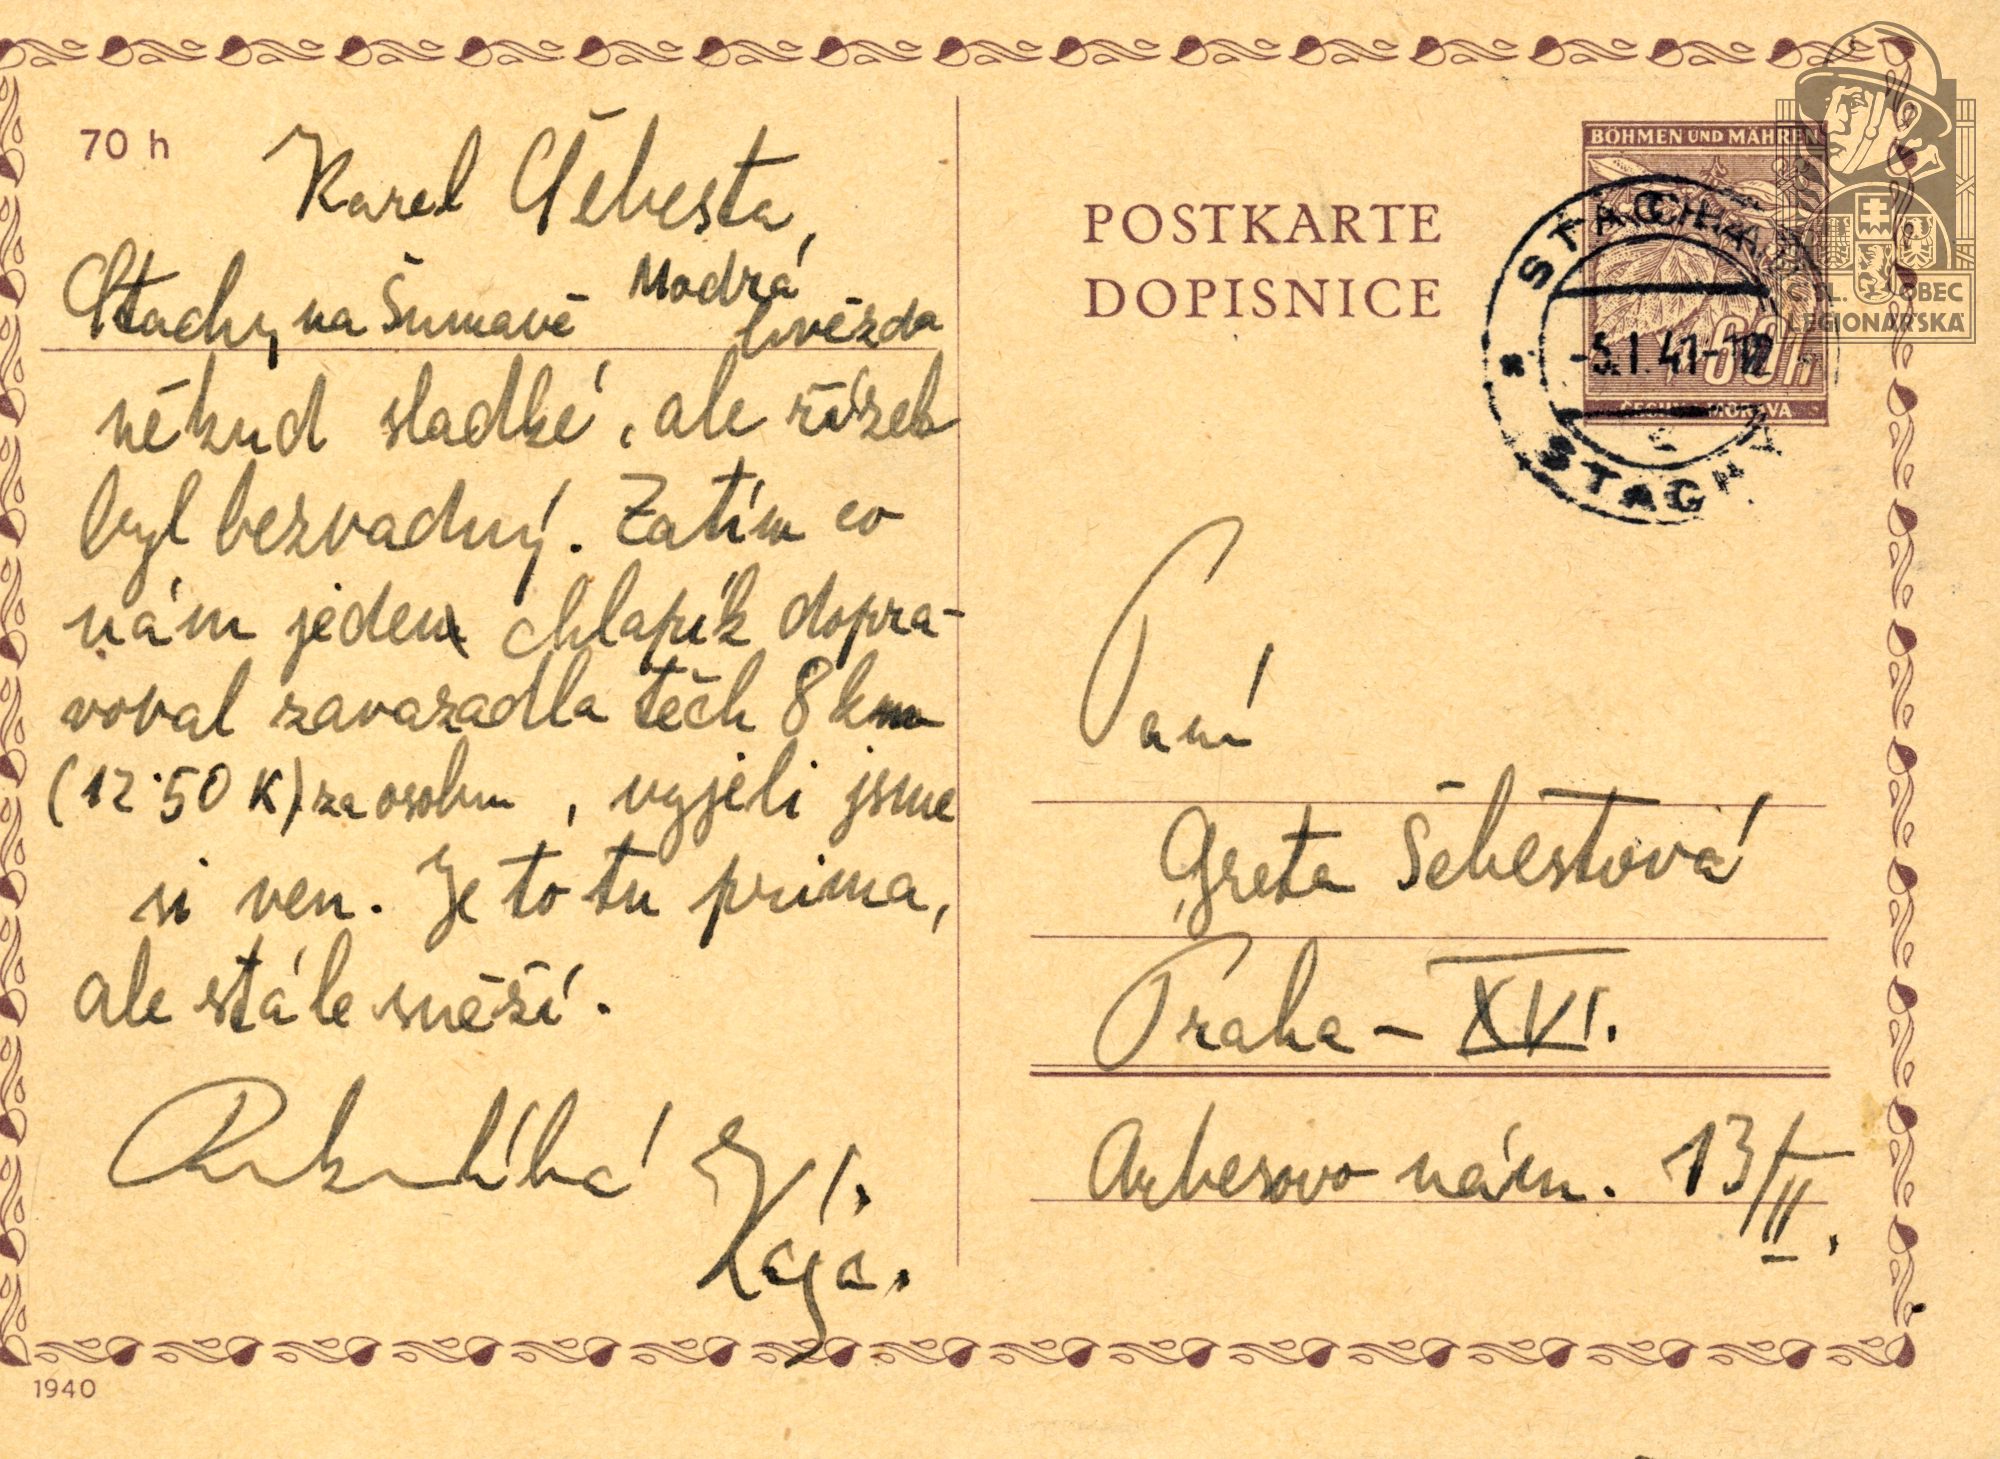 70 h
Karel Šebesta,
Stachy na Šumavě Modrá
hvězda
někud sladké, ale řízek
byl bezvadný. Zatím co
nám jeden chlapík dopra-
voval zavazadla těch 8 km
(12·50 K) za osobu, vyjeli jsme
si ven. Je to tu prima,
ale stále sněží.
líbá
Kája.
1940
POSTKARTE
DOPISNICE
BÖHMEN UND MÄHREN
60h
ČECHY A MORAVA
STACHAU
-5.I.41-12
STACHY
ČSL. OBEC
LEGIONÁŘSKÁ
Paní
Greta Šebestová
Praha – XVI.
Arbesovo nám. 13/II.